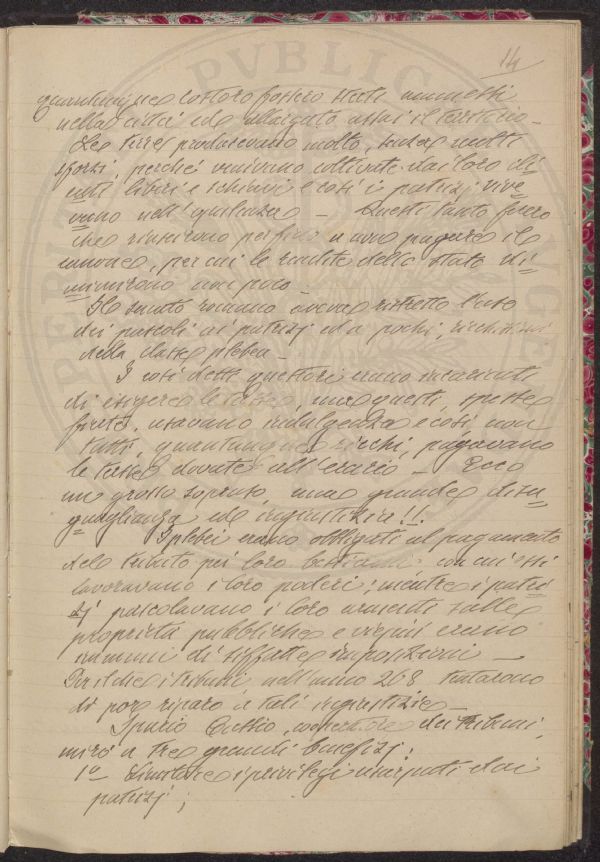 14
quantunque costoro fossero stati ammessi
nella città ed allargato assai il territorio –
Le terre producevano molto, senza molti
sforzi, perché venivano coltivate dai loro cli-
enti, liberi e schiavi e così i patrizj vive-
vano nell'opulenza – Questi tanto fecero
che riuscirono perfino a non pagare il
canone, per cui le rendite dello stato di-
minuirono non poco –
Il senato romano aveva ristretto l'uso
dei pascoli ai patrizj ed a pochi, ricchissimi
della classe plebea –
I così detti questori erano incaricati
di esigere le tasse, ma questi, spesse
fiate, usavano indulgenza e così non
tutti, quantunque ricchi, pagavano
le tasse dovute all'erario – Ecco
un grosso sopruso, una grande disu-
guaglianza ed ingiustizia!!
I plebei erano obbligati al pagamento
del tributo pei loro bestiami con cui essi
lavoravano i loro poderi; mentre i patri-
zj pascolavano i loro armenti sulle
proprietà pubbliche e vicini erano
immuni di siffatte imposizioni –
Per il che i tribuni nell'anno 268 tentarono
di por riparo a tali ingiustizie –
Spurio Cassio, dei tribuni,
mirò a tre grandi benefizj:
1° Limitare i privilegi usurpati dai
patrizj;